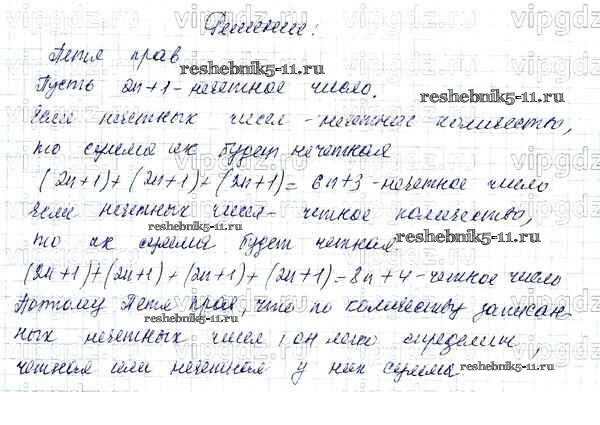 Решение:
Петя прав
reshebnik5-11.ru
Пусть 2n+1 - нечетное число.
reshebnik5-11.ru
Если нечетных чисел - нечетное количество,
то сумма их будет нечетная
(2n+1)+(2n+1)+(2n+1)=6n+3 - нечетное число
Если нечетных чисел - четное количество,
reshebnik5-11.ru
то их сумма будет четная
reshebnik5-11.ru
(2n+1)+(2n+1)+(2n+1)+(2n+1)=8n+4 - четное число
Поэтому Петя прав, что по количеству записан-
reshebnik5-11.ru
ных нечетных чисел, он легко определит,
четная или нечетная у них сумма
reshebnik5-11.ru
vipgdz.ru